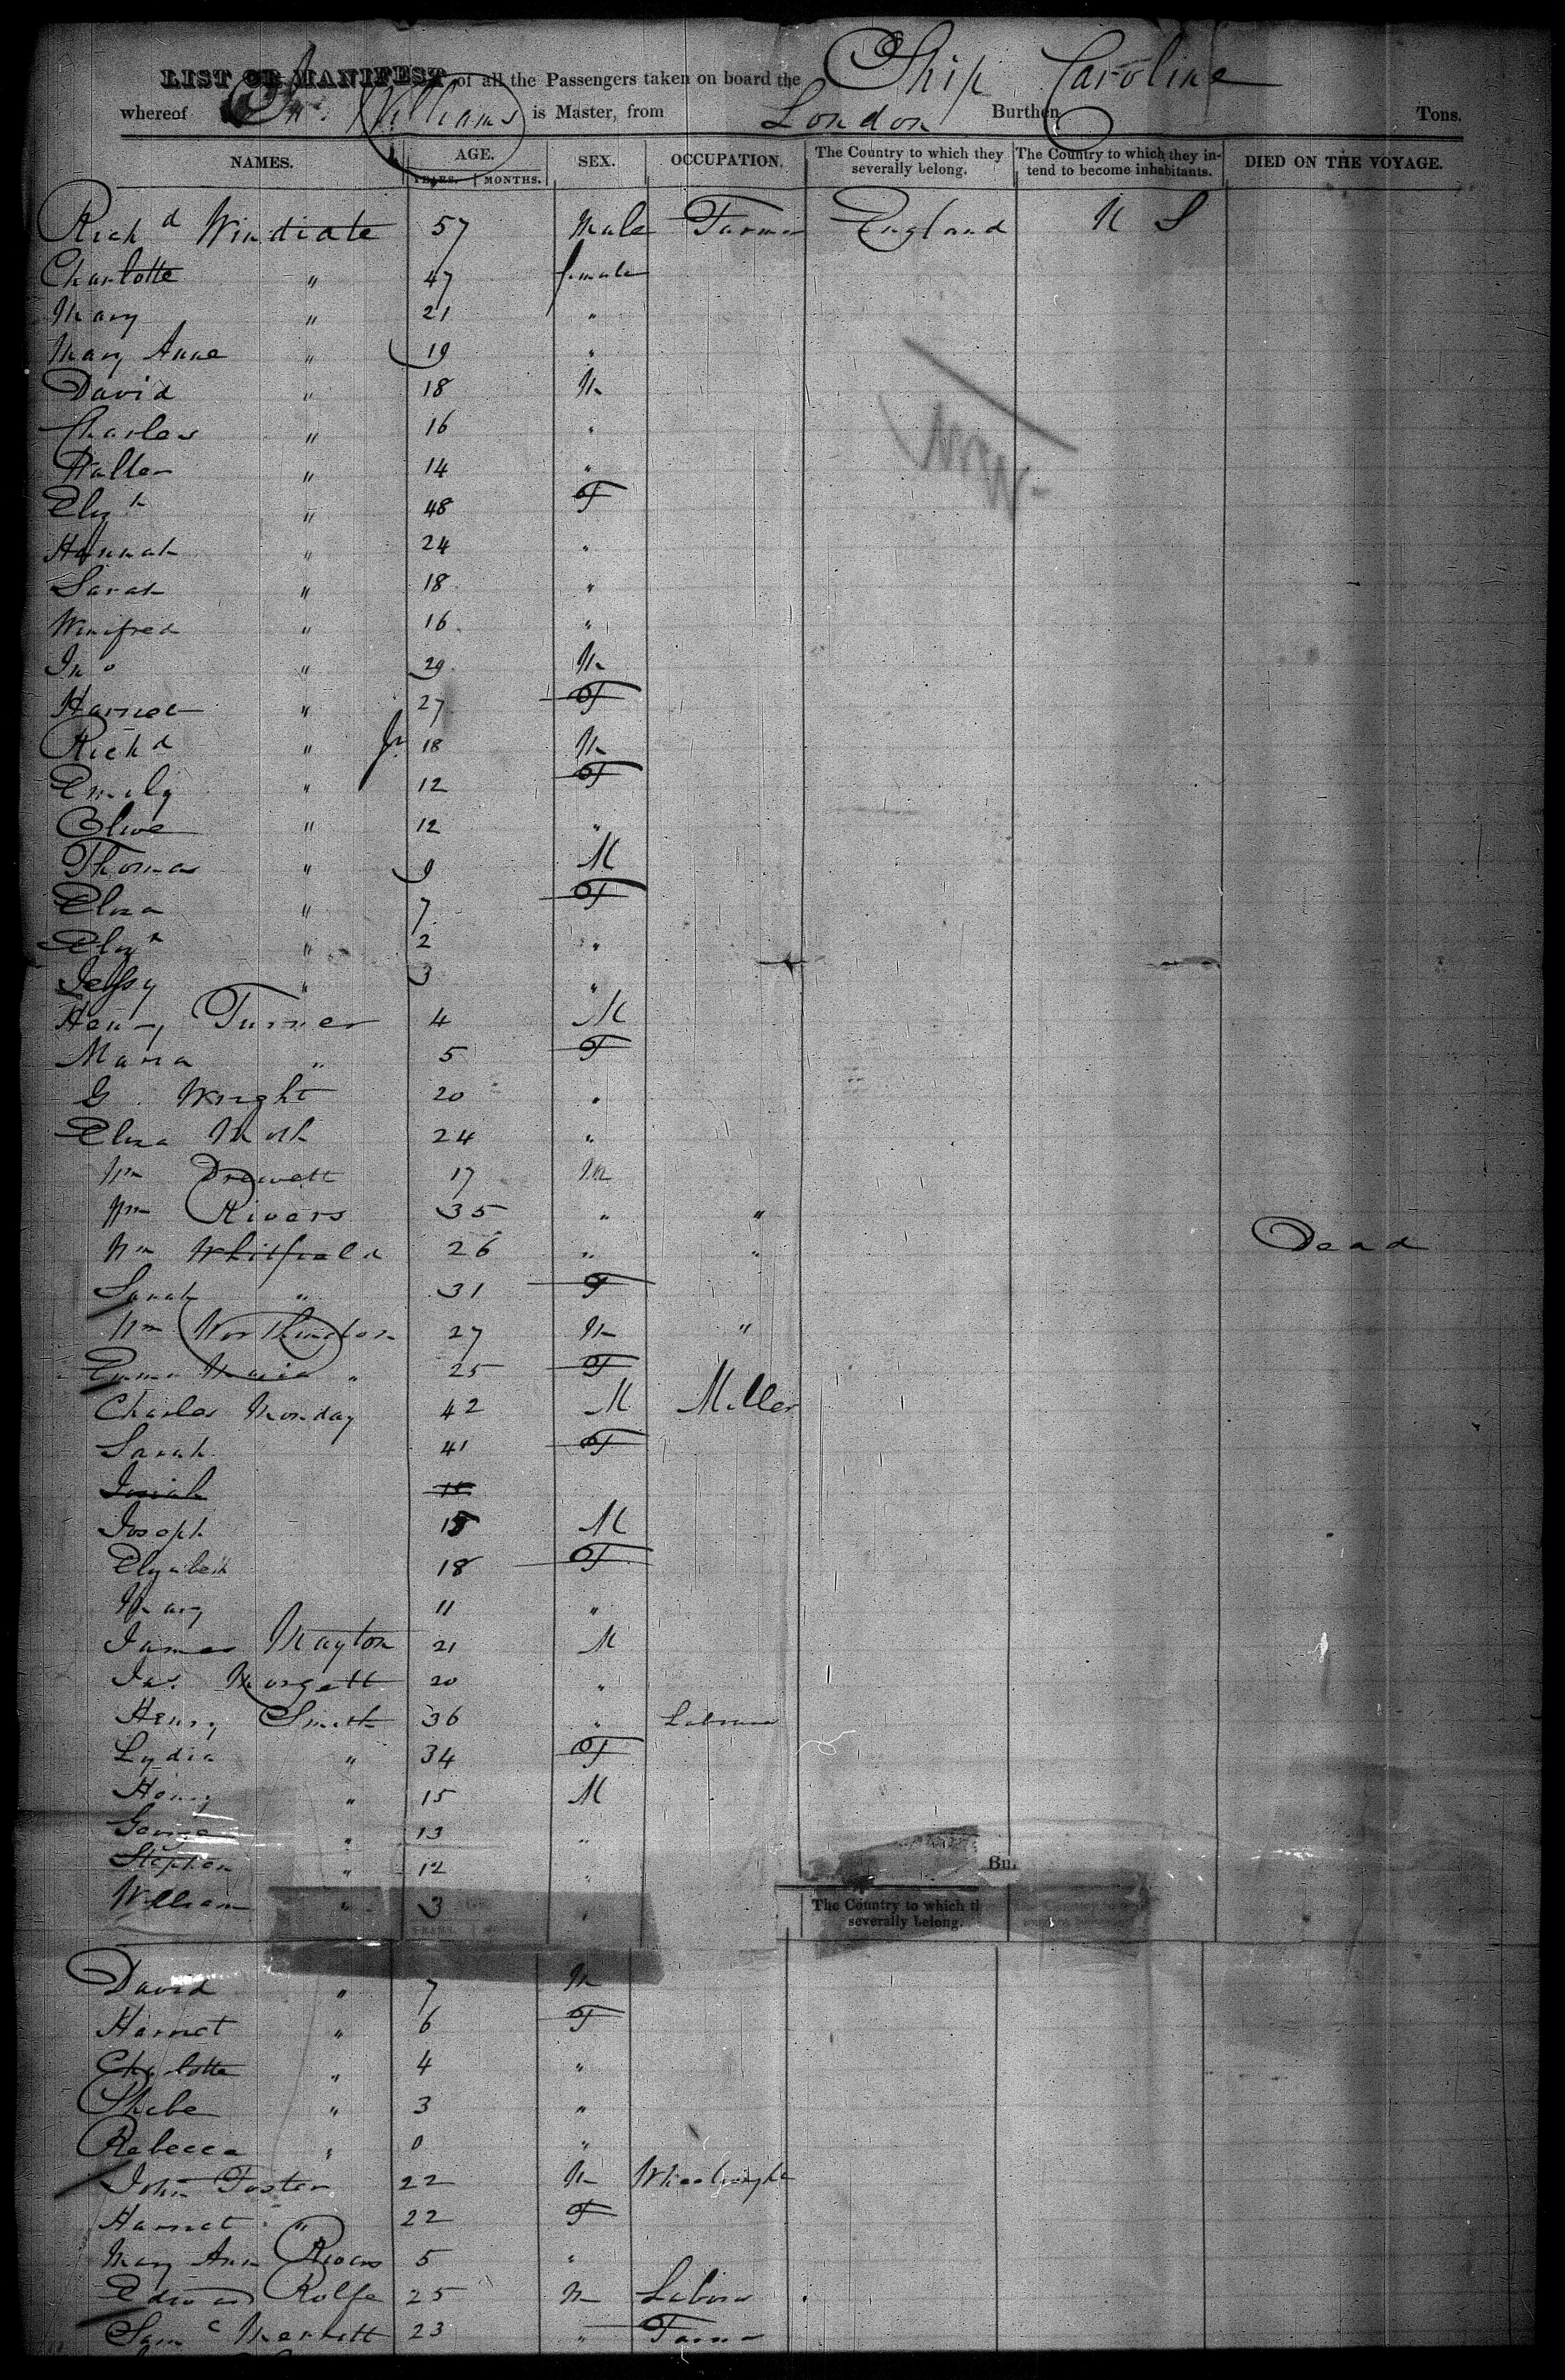 LIST OR MANIFEST of all the Passengers taken on board the Ship Caroline
whereof Williams is Master, from London Burthen Tons.
NAMES. AGE. SEX. OCCUPATION. The Country to which they severally belong. The Country to which they intend to become inhabitants. DIED ON THE VOYAGE.
YEARS. MONTHS.
Richd Windiate 57 Male Farmer England U S
Charlotte " 47 female
Mary " 21 "
Mary Anne " 19 "
David " 18 M
Charles " 16 "
Walter " 14 "
Elizh " 48 F
Hannah " 24 "
Sarah " 18 "
Winifred " 16 "
Jno " 29 M
Harriet " 27 F
Richd " Jr 18 M
Emily " 12 F
Olive " 12 "
Thomas " 9 M
Eliza " 7 F
Elizh " 2 "
Jessy " 3 "
Henry Turner 4 M
Maria " 5 F
G. Wright 20 "
Eliza 24 "
Wm Drewett 17 M
Wm Rivers 35 " "
Wm Whitfield 26 " " Dead
Sarah " 31 F
Wm 27 M "
Emma Maria " 25 F
Charles Monday 42 M Miller
Sarah 41 F
Josiah
Joseph 15 M
Elizabeth 18 F
Mary 11 "
James Mayton 21 M
Jas. 20 "
Henry Smith 36 " Labourer
Lydia " 34 F
Henry " 15 M
George " 13 "
Stephen " 12 "
William " 3 "
Bur
The Country to which th severally belong.
David " 7 M
Harriet " 6 F
Charlotte " 4 "
Phebe " 3 "
Rebecca " 0 "
John Foster 22 M Wheelwright
Harriet " 22 F
Mary Ann Rivers 5 "
Edward Rolfe 25 M Labour
Saml 23 " Farmer